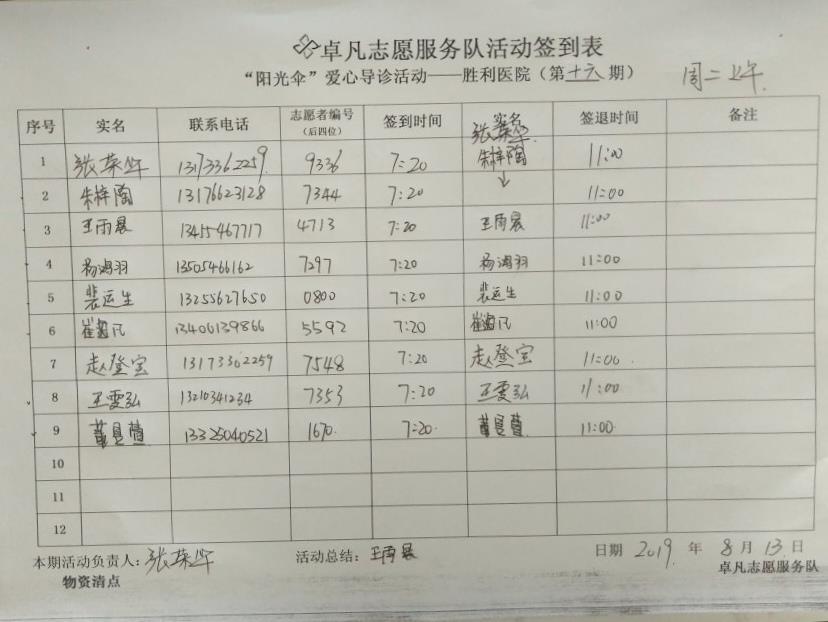 卓凡志愿服务队活动签到表
“阳光伞”爱心导诊活动——胜利医院（第十六期） 周二上午
序号 实名 联系电话 志愿者编号（后四位） 签到时间 实名 签退时间 备注
张荣华
1 张荣华 13173362259 9336 7:20 朱梓陶 11:00
2 朱梓陶 13176623128 7344 7:20 ↓ 11:00
3 王雨晨 13415467717 4713 7:20 王雨晨 11:00
4 杨鸿羽 13505466162 7297 7:20 杨鸿羽 11:00
5 裴运生 13255627650 0800 7:20 裴运生 11:00
6 13406139866 5592 7:20 11:00
7 赵登宝 13173362259 7548 7:20 赵登宝 11:00
8 王雯弘 13210341234 7353 7:20 王雯弘 11:00
9 13325040521 1670 7:20 11:00
10
11
12
本期活动负责人：张荣华 活动总结：王雨晨 日期 2019 年 8 月 13 日
物资清点 卓凡志愿服务队